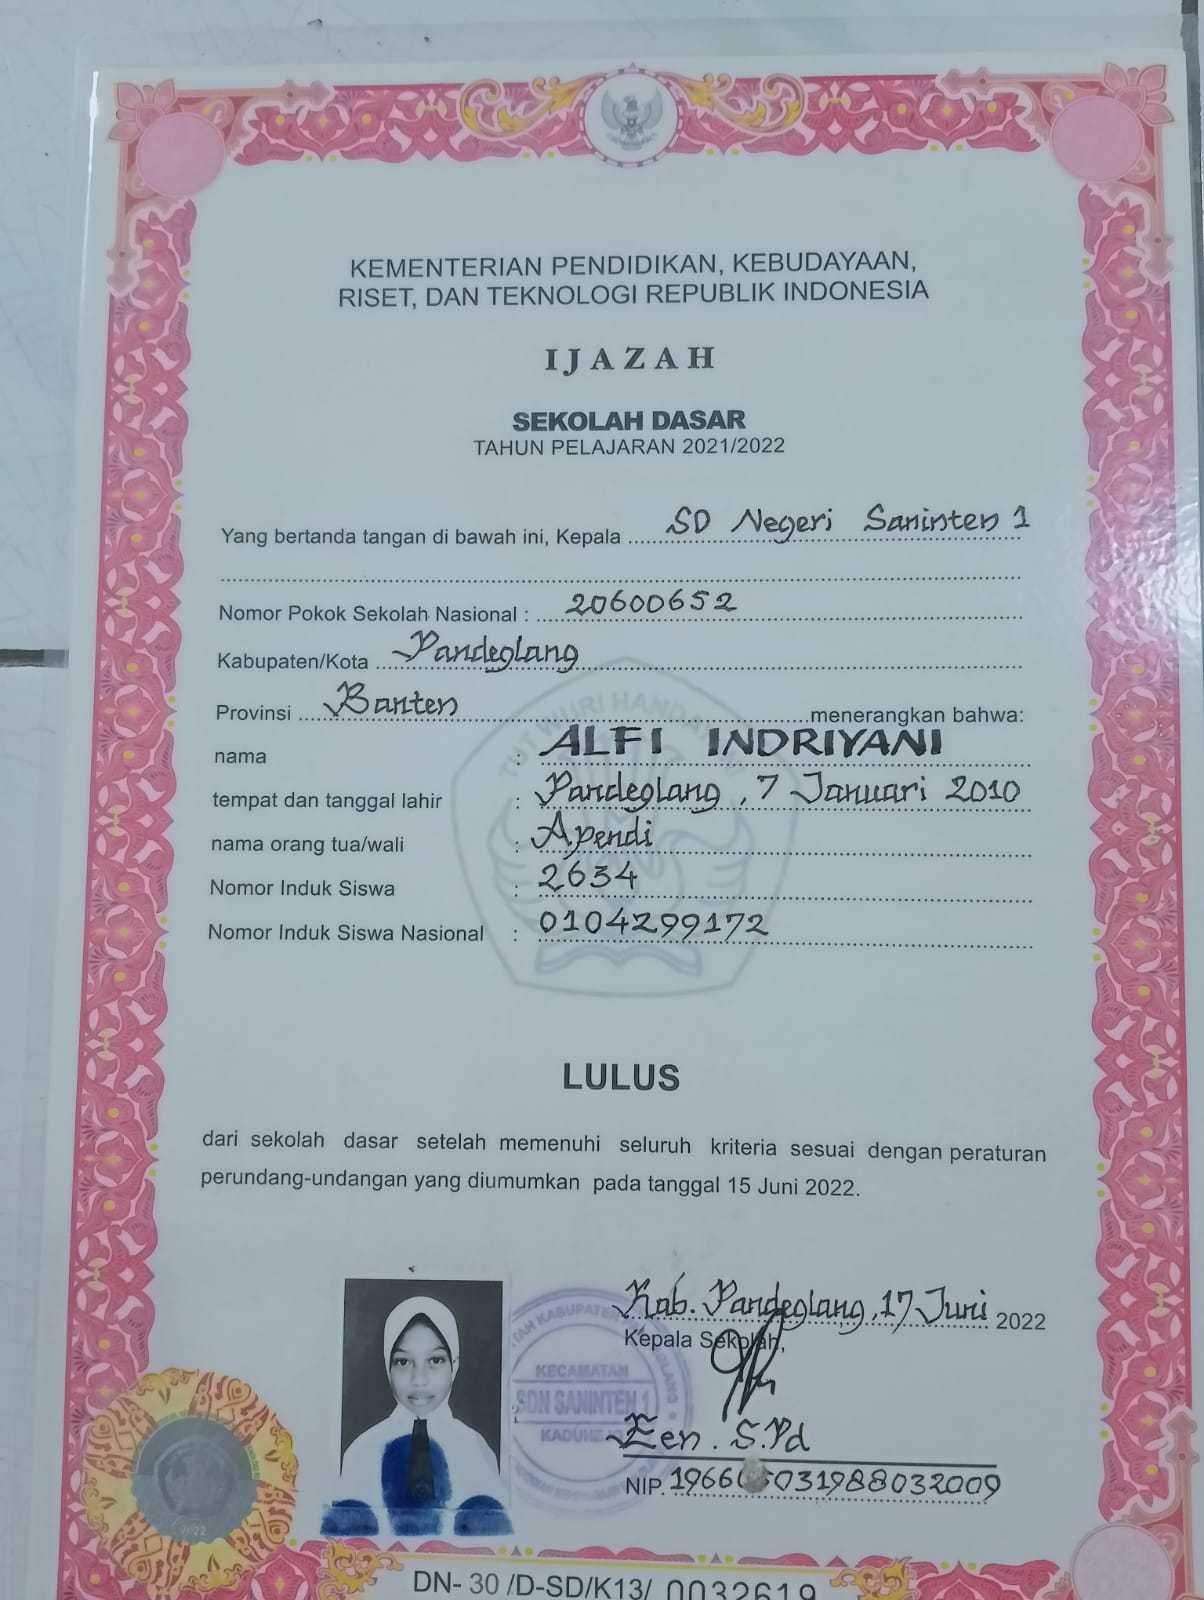 KEMENTERIAN PENDIDIKAN, KEBUDAYAAN,
RISET, DAN TEKNOLOGI REPUBLIK INDONESIA
IJAZAH
SEKOLAH DASAR
TAHUN PELAJARAN 2021/2022
Yang bertanda tangan di bawah ini, Kepala SD Negeri Saninten 1
Nomor Pokok Sekolah Nasional : 20600652
Kabupaten/Kota Pandeglang
Provinsi Banten menerangkan bahwa:
nama : ALFI INDRIYANI
tempat dan tanggal lahir : Pandeglang, 7 Januari 2010
nama orang tua/wali : Apendi
Nomor Induk Siswa : 2634
Nomor Induk Siswa Nasional : 0104299172
TUT WURI HANDAYANI
LULUS
dari sekolah dasar setelah memenuhi seluruh kriteria sesuai dengan peraturan
perundang-undangan yang diumumkan pada tanggal 15 Juni 2022.
Kab. Pandeglang, 17 Juni 2022
Kepala Sekolah,
KECAMATAN
SDN SANINTEN 1
Zen. S.Pd
NIP.
2022
DN- 30 /D-SD/K13/ 0032619